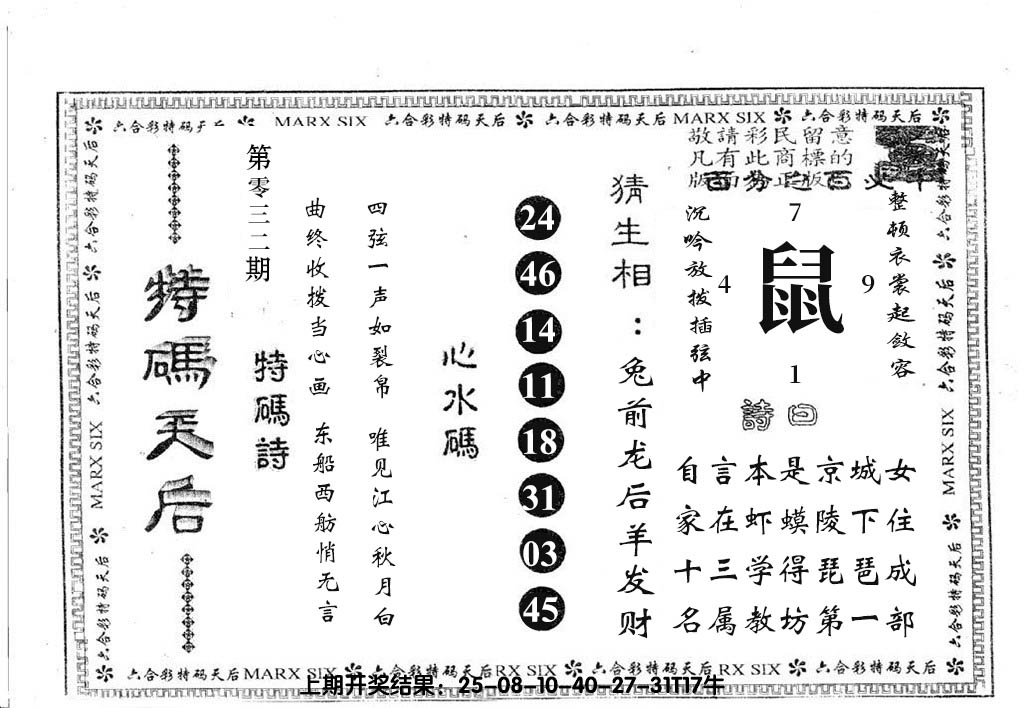 六合彩特码天 MARX SIX 六合彩特码天后 六合彩特码天后 MARX SIX 六合彩特码天后
六合彩特码天后 六合彩特码天后 MARX SIX 六合彩特码天后
特碼天后
第零三二期
特碼詩
曲终收拨当心画 东船西舫悄无言
四弦一声如裂帛 唯见江心秋月白
心水碼
24
46
14
11
18
31
03
45
猜生相：兔前龙后羊发财
敬請彩民留意
凡有此商標的
版面为正版
沉吟放拨插弦中
7
4 鼠 9
1
整顿衣裳起敛容
詩曰
自言本是京城女
家在虾蟆陵下住
十三学得琵琶成
名属教坊第一部
六合彩特码天后 六合彩特码天后 MARX SIX 六合彩特码天后
六合彩特码天后 MARX SIX 六合彩特码天后 RX SIX 六合彩特码天后 RX SIX 六合彩特码天后
上期开奖结果：25-08-10-40-27-31T17牛